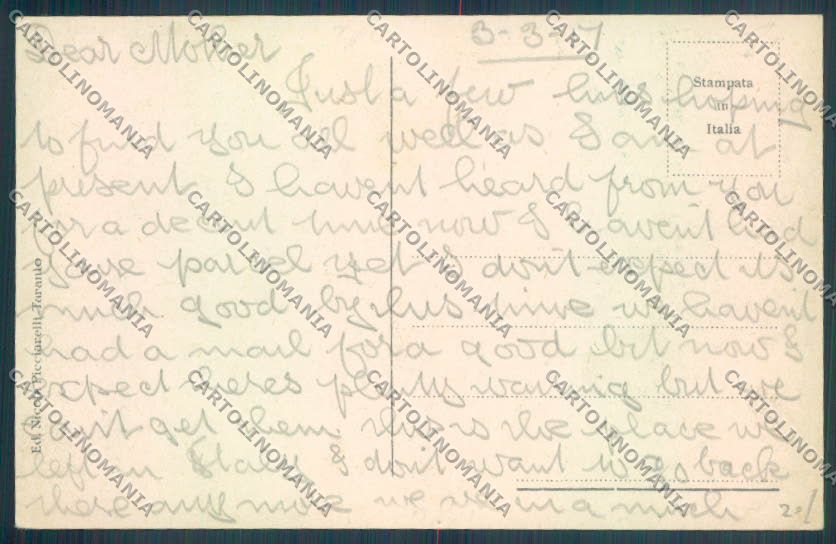 Dear Mother 3-3-17
Just a few lines hoping
to find you all well as I am at
present I havent heard from you
for a decent time now I havent had
your parcel yet I dont expect its
much good by this time we havent
had a mail for a good bit now I
expect theres plenty waiting but we
dont get them this is the place we
left in Italy I dont want to go back
there any more we were in a much
Stampata
in
Italia
Ed. Nicola Picciarelli, Taranto
20/
CARTOLINOMANIA